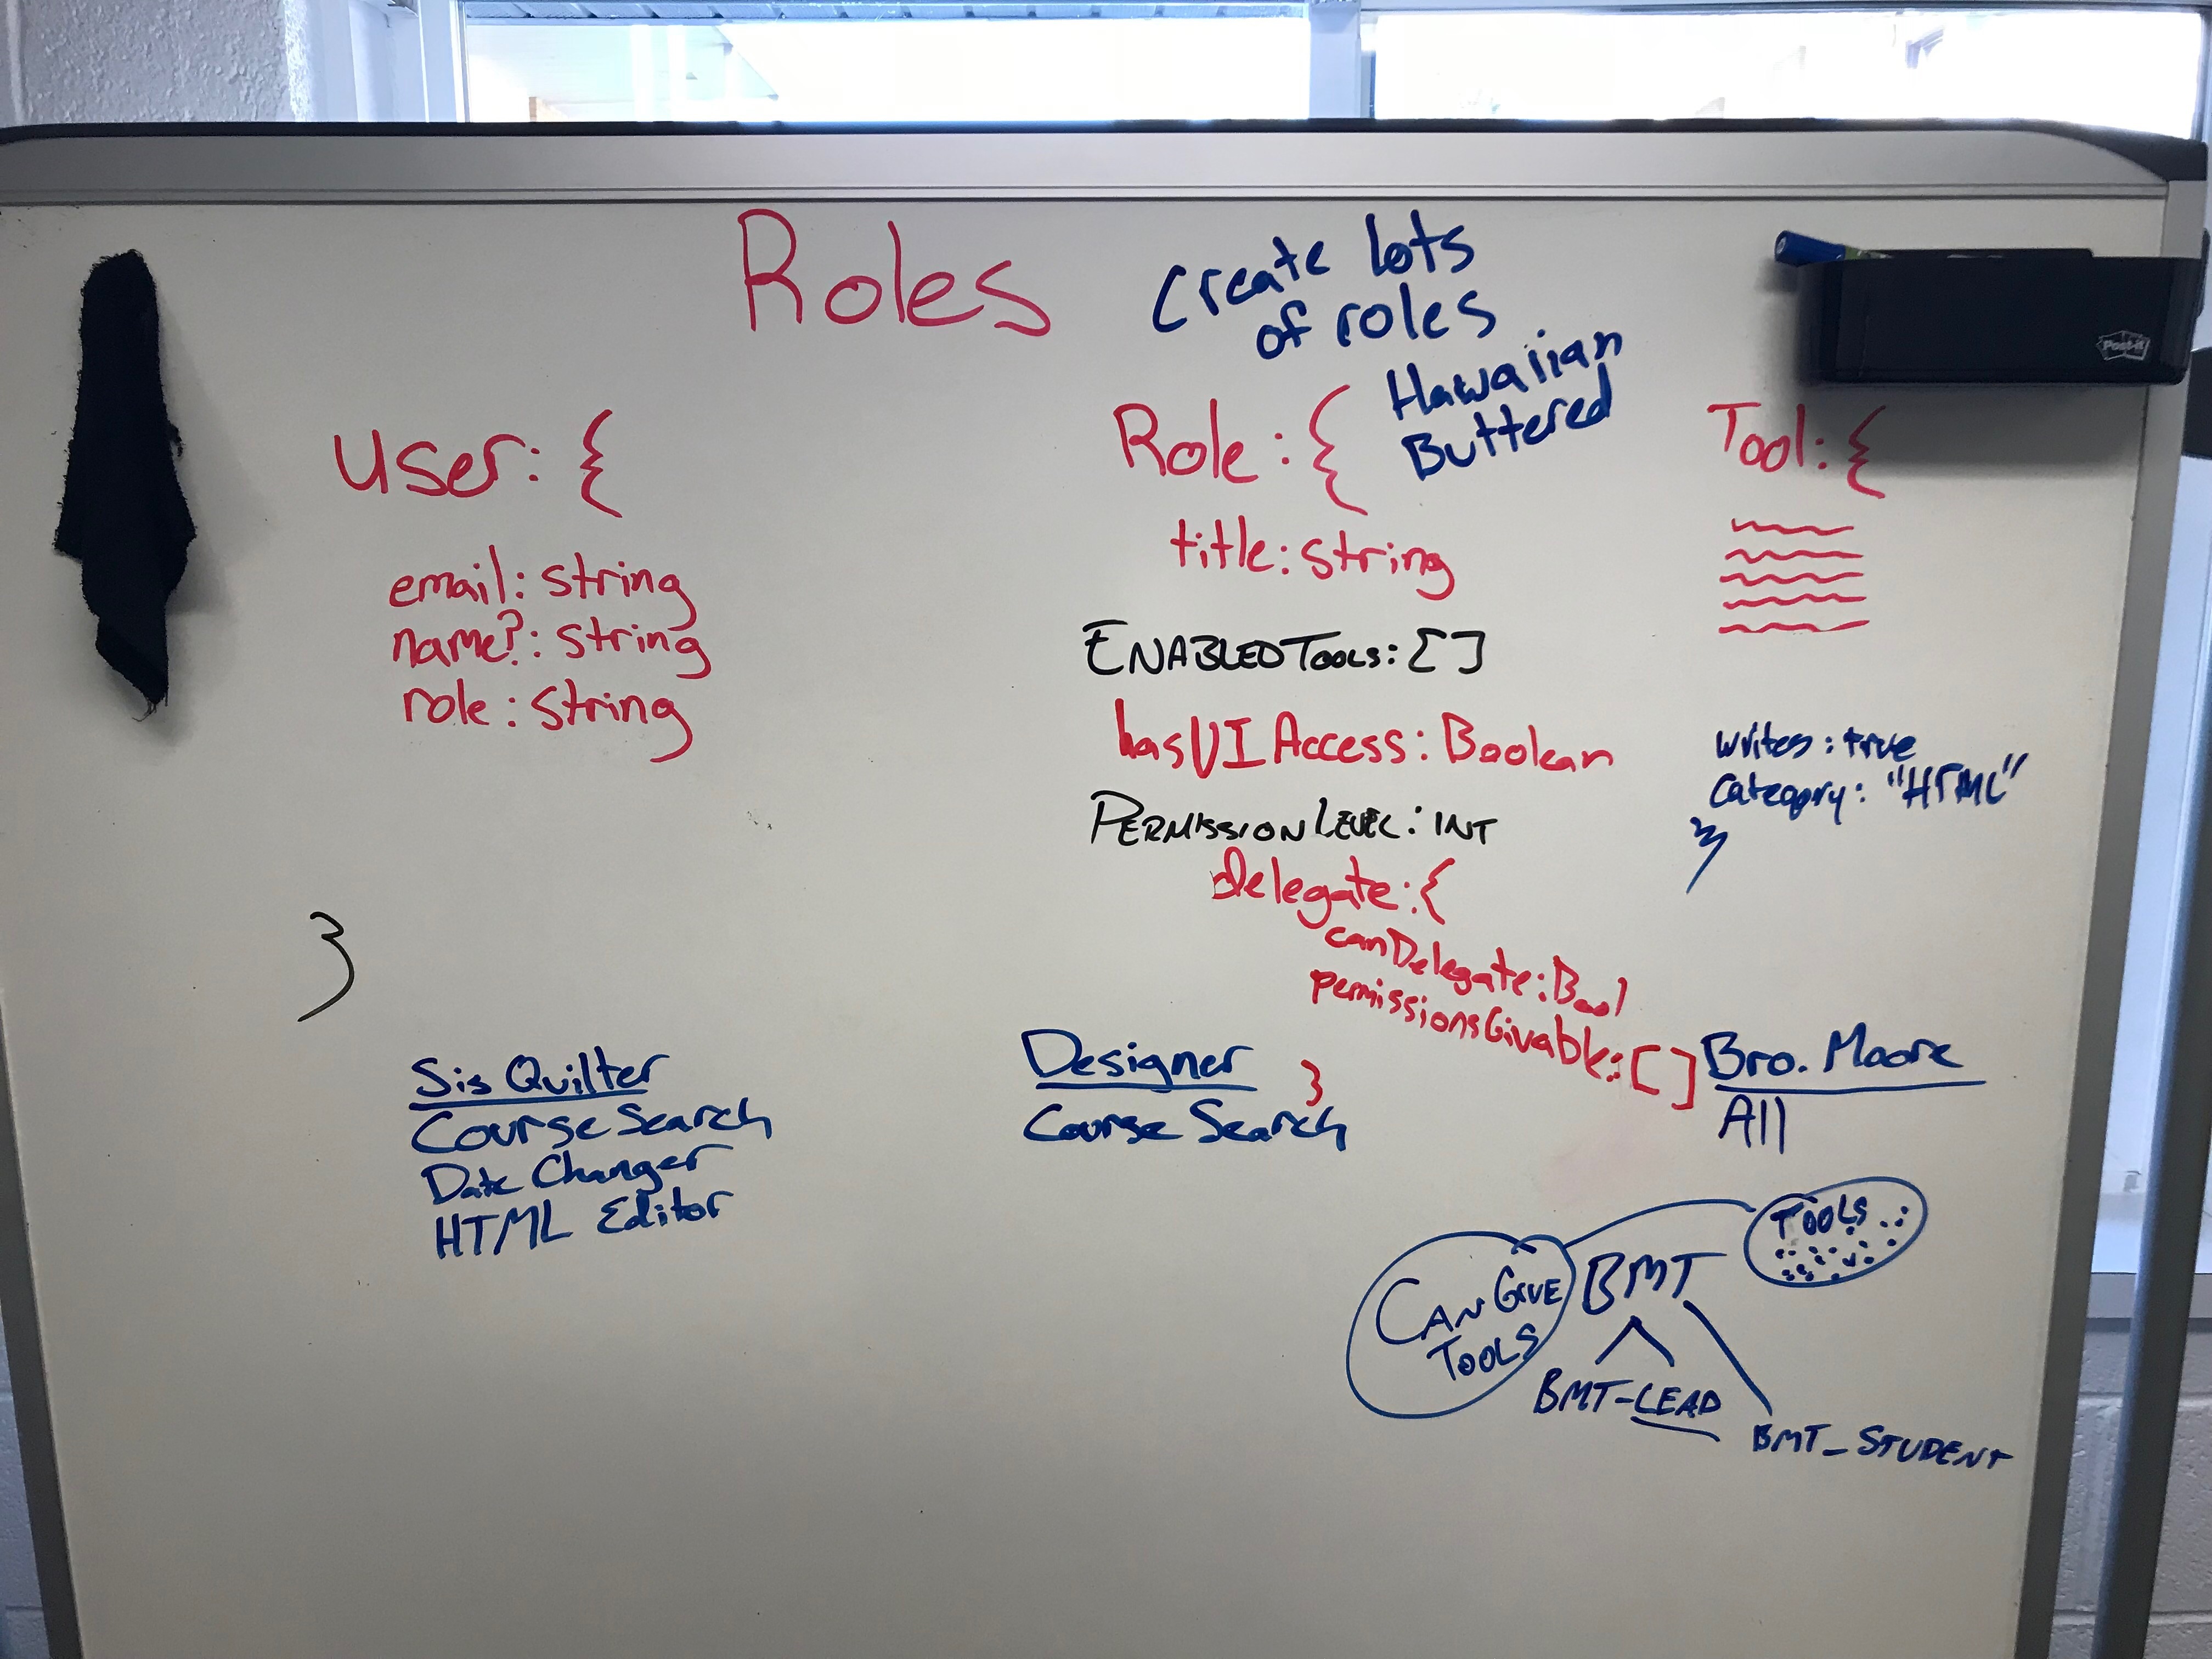 Roles
Create lots
of roles
Hawaiian
Buttered
Post-it
user: {
email: string
name?: string
role: string
}
Role: {
title: string
ENABLEDTOOLS: []
hasUIAccess: Boolean
PERMISSIONLEVEL: INT
delegate: {
canDelegate: Bool
permissionsGivable: []
}
Tool: {
writes: true
Category: "HTML"
}
Sis Quilter
Course Search
Date Changer
HTML Editor
Designer
Course Search
Bro. Moore
All
TOOLS
CAN GIVE
TOOLS
BMT
BMT-LEAD
BMT_STUDENT